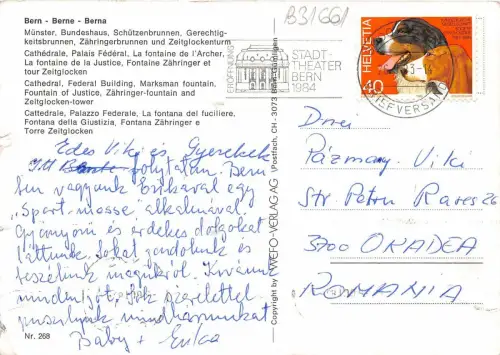 Bern - Berne - Berna
Münster, Bundeshaus, Schützenbrunnen, Gerechtig-
keitsbrunnen, Zähringerbrunnen und Zeitglockenturm
Cathédrale, Palais Fédéral, La fontaine de l'Archer,
La fontaine de la Justice, Fontaine Zähringer et
tour Zeitglocken
Cathedral, Federal Building, Marksman fountain,
Fountain of Justice, Zähringer-fountain and
Zeitglocken-tower
Cattedrale, Palazzo Federale, La fontana del fuciliere,
Fontana della Giustizia, Fontana Zähringer e
Torre Zeitglocken
Edes Viki és Gyerekek
Itt folytatan. Bern
ben vagyunk Erikaval egy
"Sport mosse" alkalmával.
Gyönyörü és érdekes dolgokat
láttunk. Sokat gondolunk és
beszélünk magukról. Kivánunk
minden jót, sok szeretettel
puszilunk mindhármunkat
Baby + Erika
Nr. 268
Copyright by WEFO-VERLAG AG (Postfach, CH - 3073 Gümligen
B31661
ERÖFFNUNG
STADT-
THEATER
BERN
1984
HELVETIA
40
BRIEFVERSAND
Pázmany Viki
Str Petru Rares 26
3700 ORADEA
ROMANIA